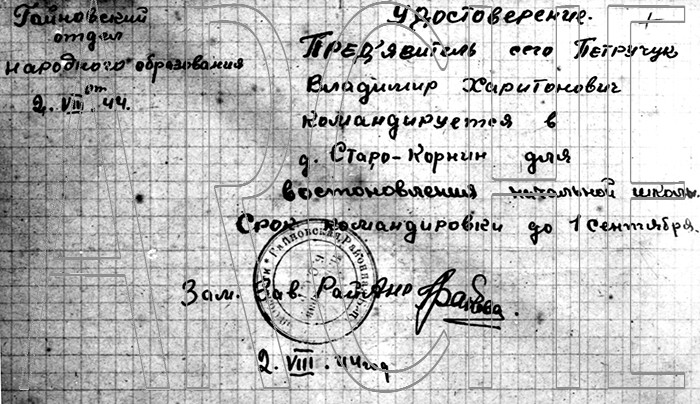 Гайновский
отдел
народного образования
от
2. VIII 44.
Удостоверение.
Пред'явитель сего Петручук
Владимир Харитонович
командируется в
д. Старо-Корнин для
востоновления начальной школы.
Срок командировки до 1 сентября.
Зам. Зав РайОно
2. VIII. 44 год